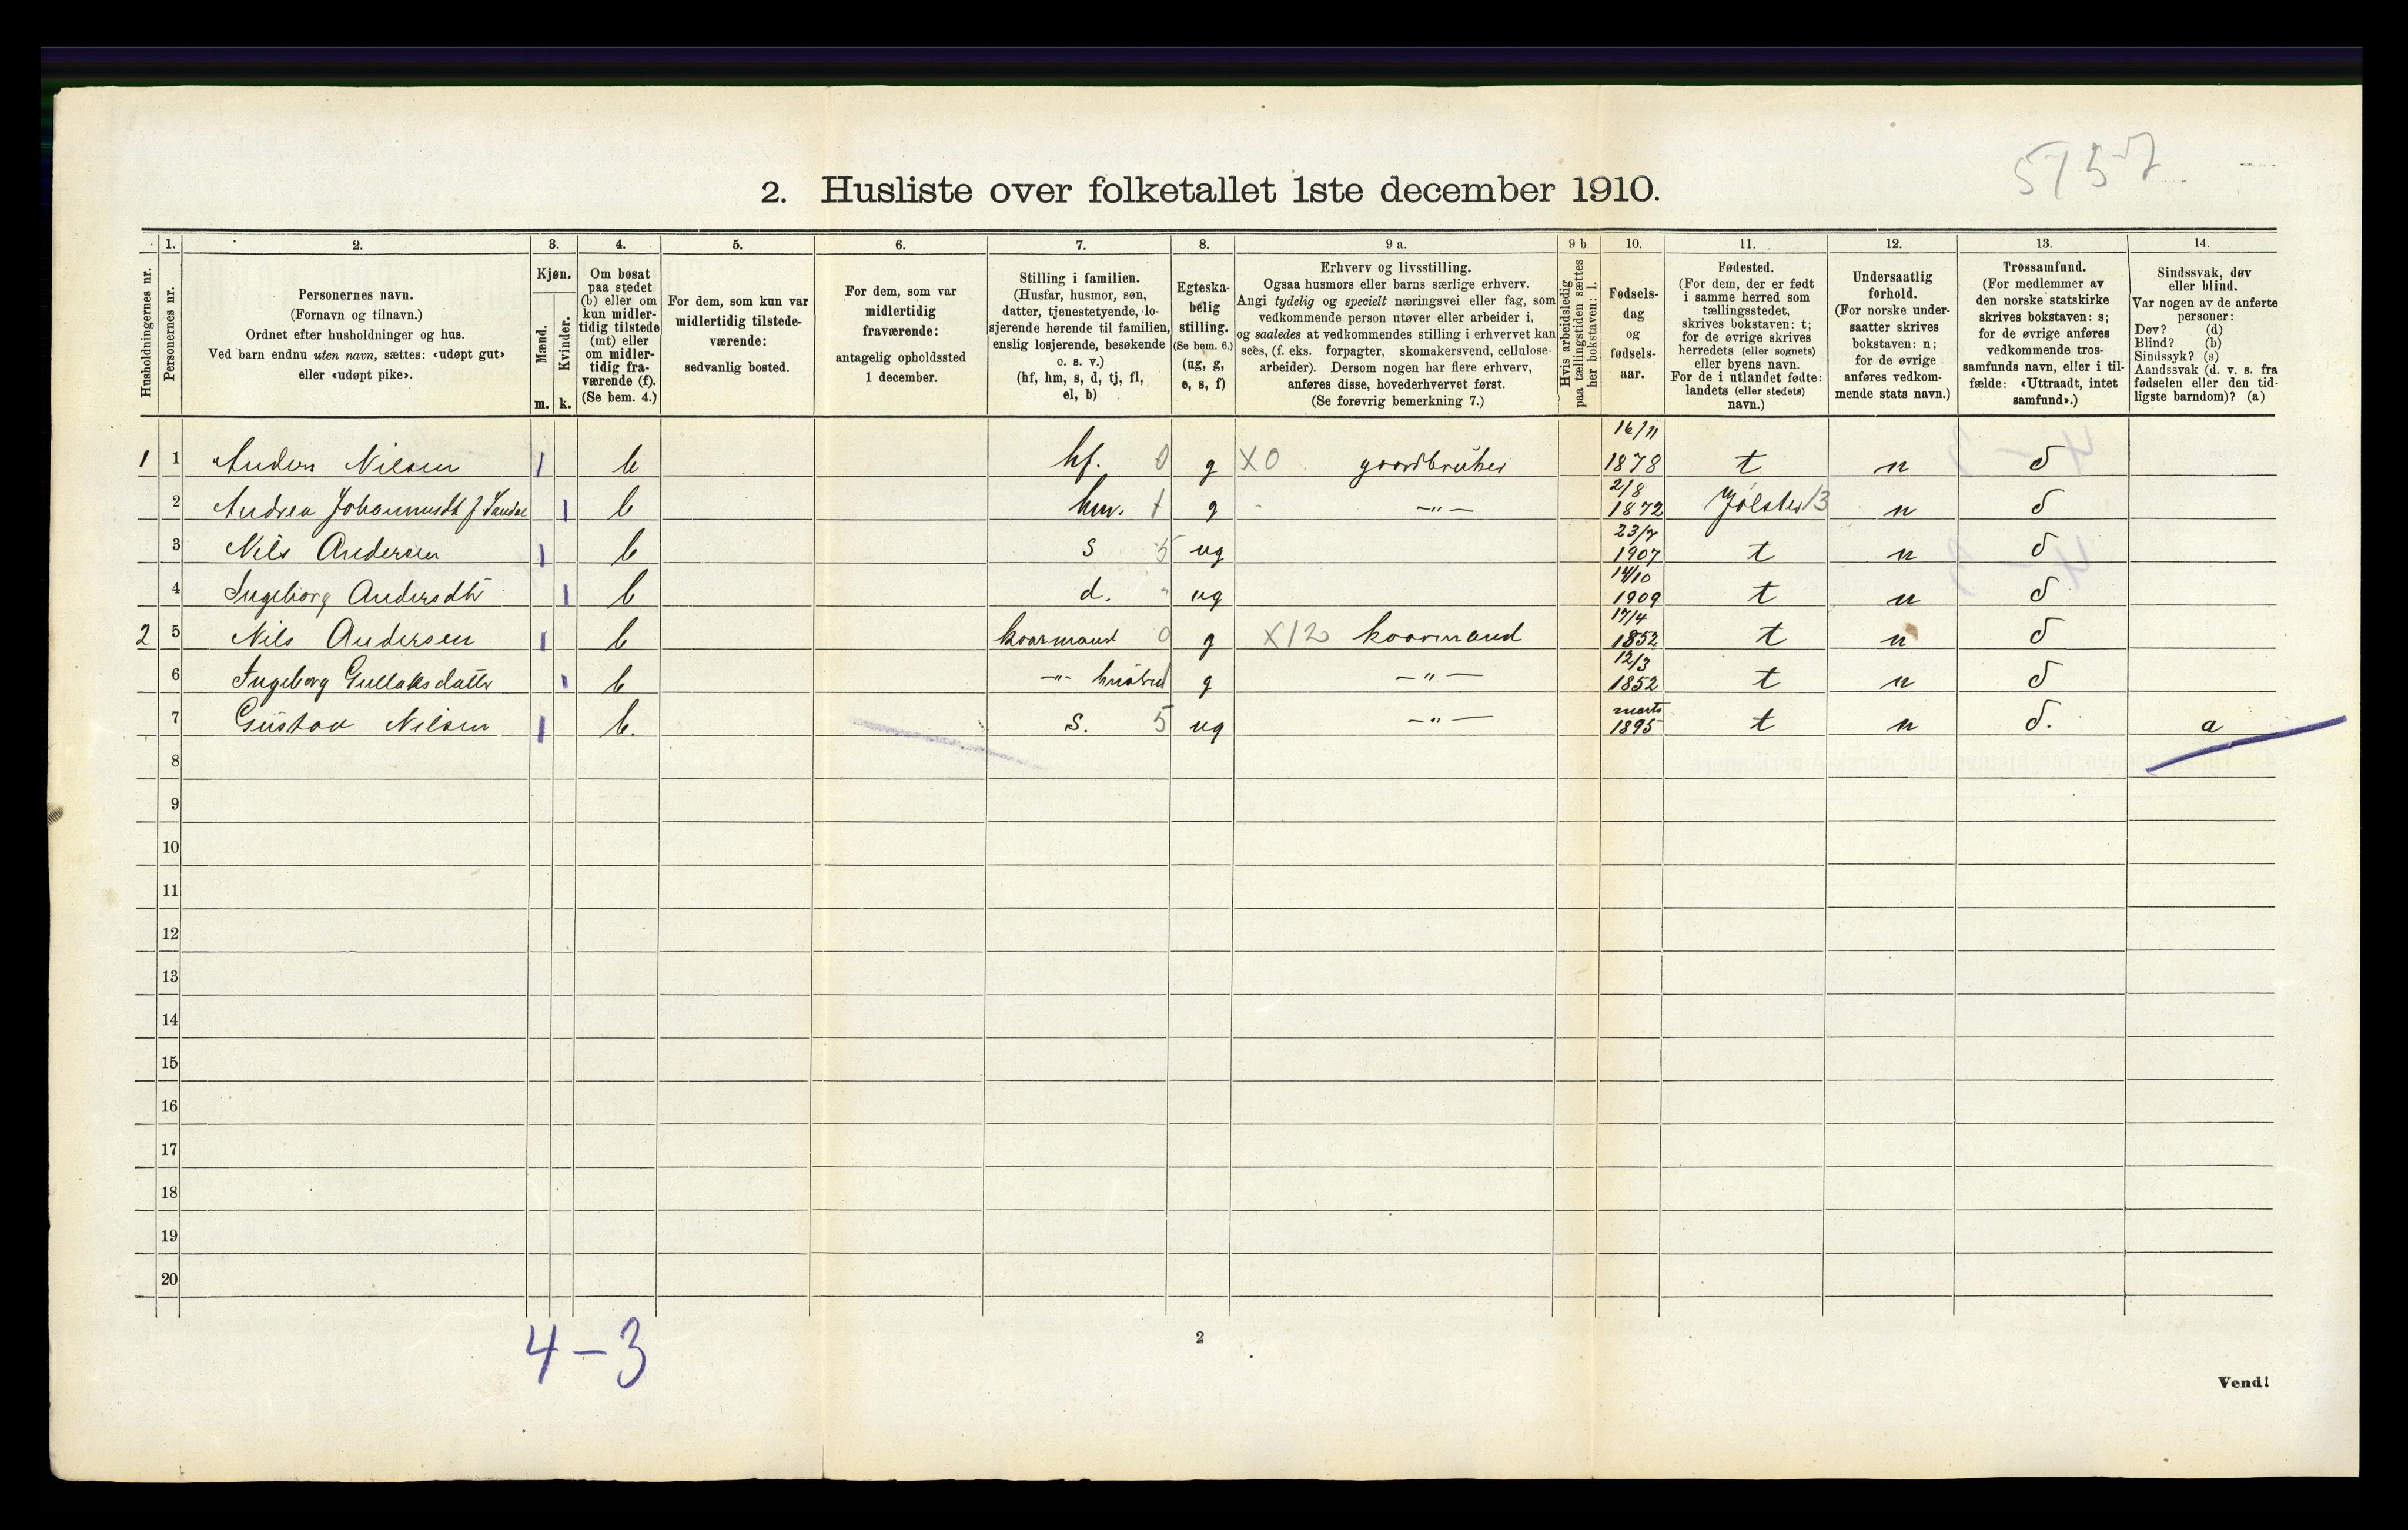 5757
2. Husliste over folketallet 1ste december 1910.
1. 2. 3. 4. 5. 6. 7. 8. 9 a. 9 b 10. 11. 12. 13. 14.
Husholdningernes nr.
Personernes nr.
Personernes navn.
(Fornavn og tilnavn.)
Ordnet efter husholdninger og hus.
Ved barn endnu uten navn, sættes: «udøpt gut»
eller «udøpt pike».
Kjøn.
Mænd.
Kvinder.
m. k.
Om bosat
paa stedet
(b) eller om
kun midler-
tidig tilstede
(mt) eller
om midler-
tidig fra-
værende (f).
(Se bem. 4.)
For dem, som kun var
midlertidig tilstede-
værende:
sedvanlig bosted.
For dem, som var
midlertidig
fraværende:
antagelig opholdssted
1 december.
Stilling i familien.
(Husfar, husmor, søn,
datter, tjenestetyende, lo-
sjerende hørende til familien,
enslig losjerende, besøkende
o. s. v.)
(hf, hm, s, d, tj, fl,
el, b)
Egteska-
belig
stilling.
(Se bem. 6.)
(ug, g,
e, s, f)
Erhverv og livsstilling.
Ogsaa husmors eller barns særlige erhverv.
Angi tydelig og specielt næringsvei eller fag, som
vedkommende person utøver eller arbeider i,
og saaledes at vedkommendes stilling i erhvervet kan
sees, (f. eks. forpagter, skomakersvend, cellulose-
arbeider). Dersom nogen har flere erhverv,
anføres disse, hovederhvervet først.
(Se forøvrig bemerkning 7.)
Hvis arbeidsledig
paa tællingstiden sættes
her bokstaven: l.
Fødsels-
dag
og
fødsels-
aar.
Fødested.
(For dem, der er født
i samme herred som
tællingsstedet,
skrives bokstaven: t;
for de øvrige skrives
herredets (eller sognets)
eller byens navn.
For de i utlandet fødte:
landets (eller stedets)
navn.)
Undersaatlig
forhold.
(For norske under-
saatter skrives
bokstaven: n;
for de øvrige
anføres vedkom-
mende stats navn.)
Trossamfund.
(For medlemmer av
den norske statskirke
skrives bokstaven: s;
for de øvrige anføres
vedkommende tros-
samfunds navn, eller i til-
fælde: «Uttraadt, intet
samfund».)
Sindssvak, døv
eller blind.
Var nogen av de anførte
personer:
Døv? (d)
Blind? (b)
Sindssyk? (s)
Aandssvak (d. v. s. fra
fødselen eller den tid-
ligste barndom)? (a)
1 1 Anders Nilsen 1 b hf. 0 g X0 gaardbruker 16/11 1878 t n s
2 Andrea Johannesdt f. Sandal 1 b hm. 1 g - -"- 2/8 1872 Jølster 13 n s
3 Nils Andersen 1 b s 5 ug 23/7 1907 t n s
4 Ingeborg Andersdtr 1 b d. " ug 14/10 1909 t n s
2 5 Nils Andersen 1 b kaarmand 0 g X12 kaarmand 17/4 1852 t n s
6 Ingeborg Gullaksdatter 1 b -"- hustru 1 g -"- 12/3 1852 t n s
7 Gustav Nilsen 1 b. s. 5 ug -"- marts 1895 t n s. a
8
9
10
11
12
13
14
15
16
17
18
19
20
4-3
2
Vend!